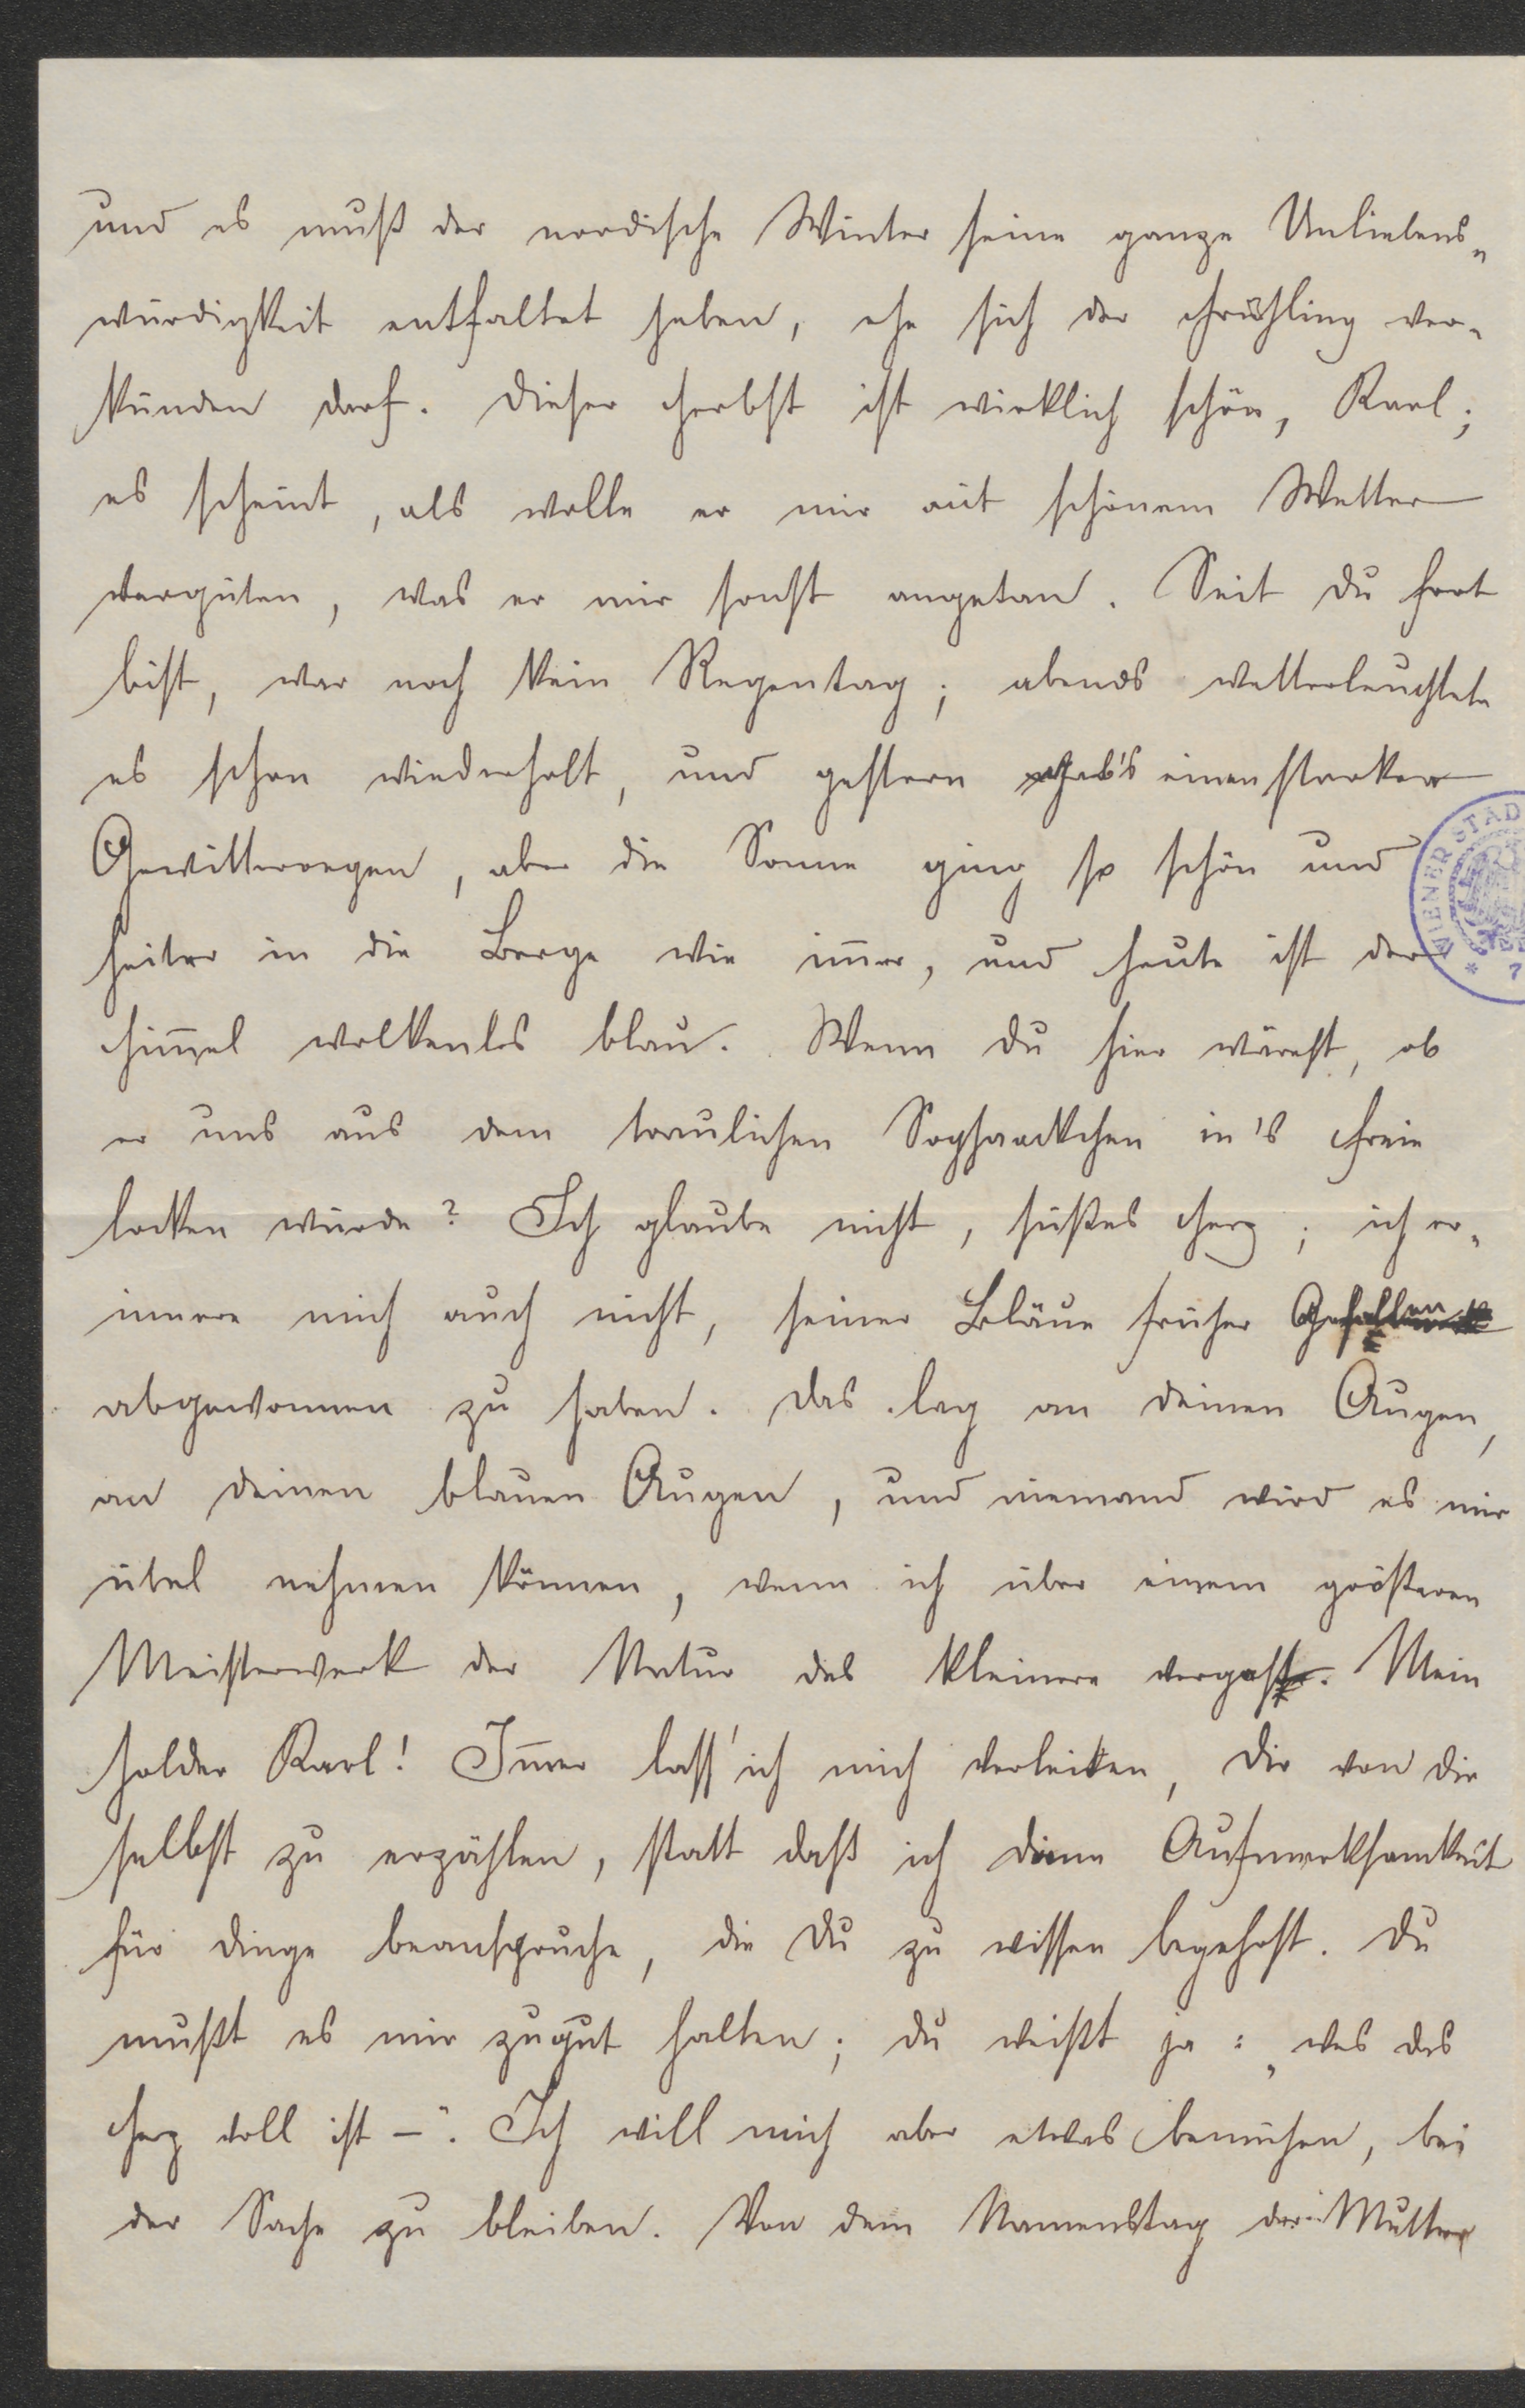 und es muß der nordische Winter seine ganze Unliebens„
würdigkeit entfaltet haben, ehe sich der Frühling ver„
künden darf. Dieser Herbst ist wirklich schön, Karl;
es scheint, als wolle er mir mit schönem Wetter
vergüten, was er mir sonst angetan. Seit du fort
bist, war noch kein Regentag; abends wetterleuchtete
es schon wiederholt, und gestern gab's einen starken
Gewitterregen, aber die Sonne ging so schön und
heiter in die Berge wie im̄er, und heute ist der
Him̄el wolkenlos blau. Wenn du hier wärest, ob
er uns aus dem traulichen Sophaeckchen in's Freie
locken würde? Ich glaube nicht, süßes Herz; ich er„
innere mich auch nicht, seiner Bläue früher Gefallen
abgewonnen zu haben. Das lag an deinen Augen,
an deinen blauen Augen, und niemand wird es mir
übel nehmen können, wenn ich über einem größeren
Meisterwerk der Natur das kleinere vergaß. Mein
holder Karl! Im̄er lass' ich mich verleiten, dir von dir
selbst zu erzählen, statt daß ich deine Aufmerksamkeit
für Dinge beanspruche, die du zu wissen begehrst. Du
mußt es mir zugut halten; du weißt ja: „wes das
Herz voll ist –“. Ich will mich aber etwas bemühen, bei
der Sache zu bleiben. Von dem Namenstag der Mutter
WIENER STAD